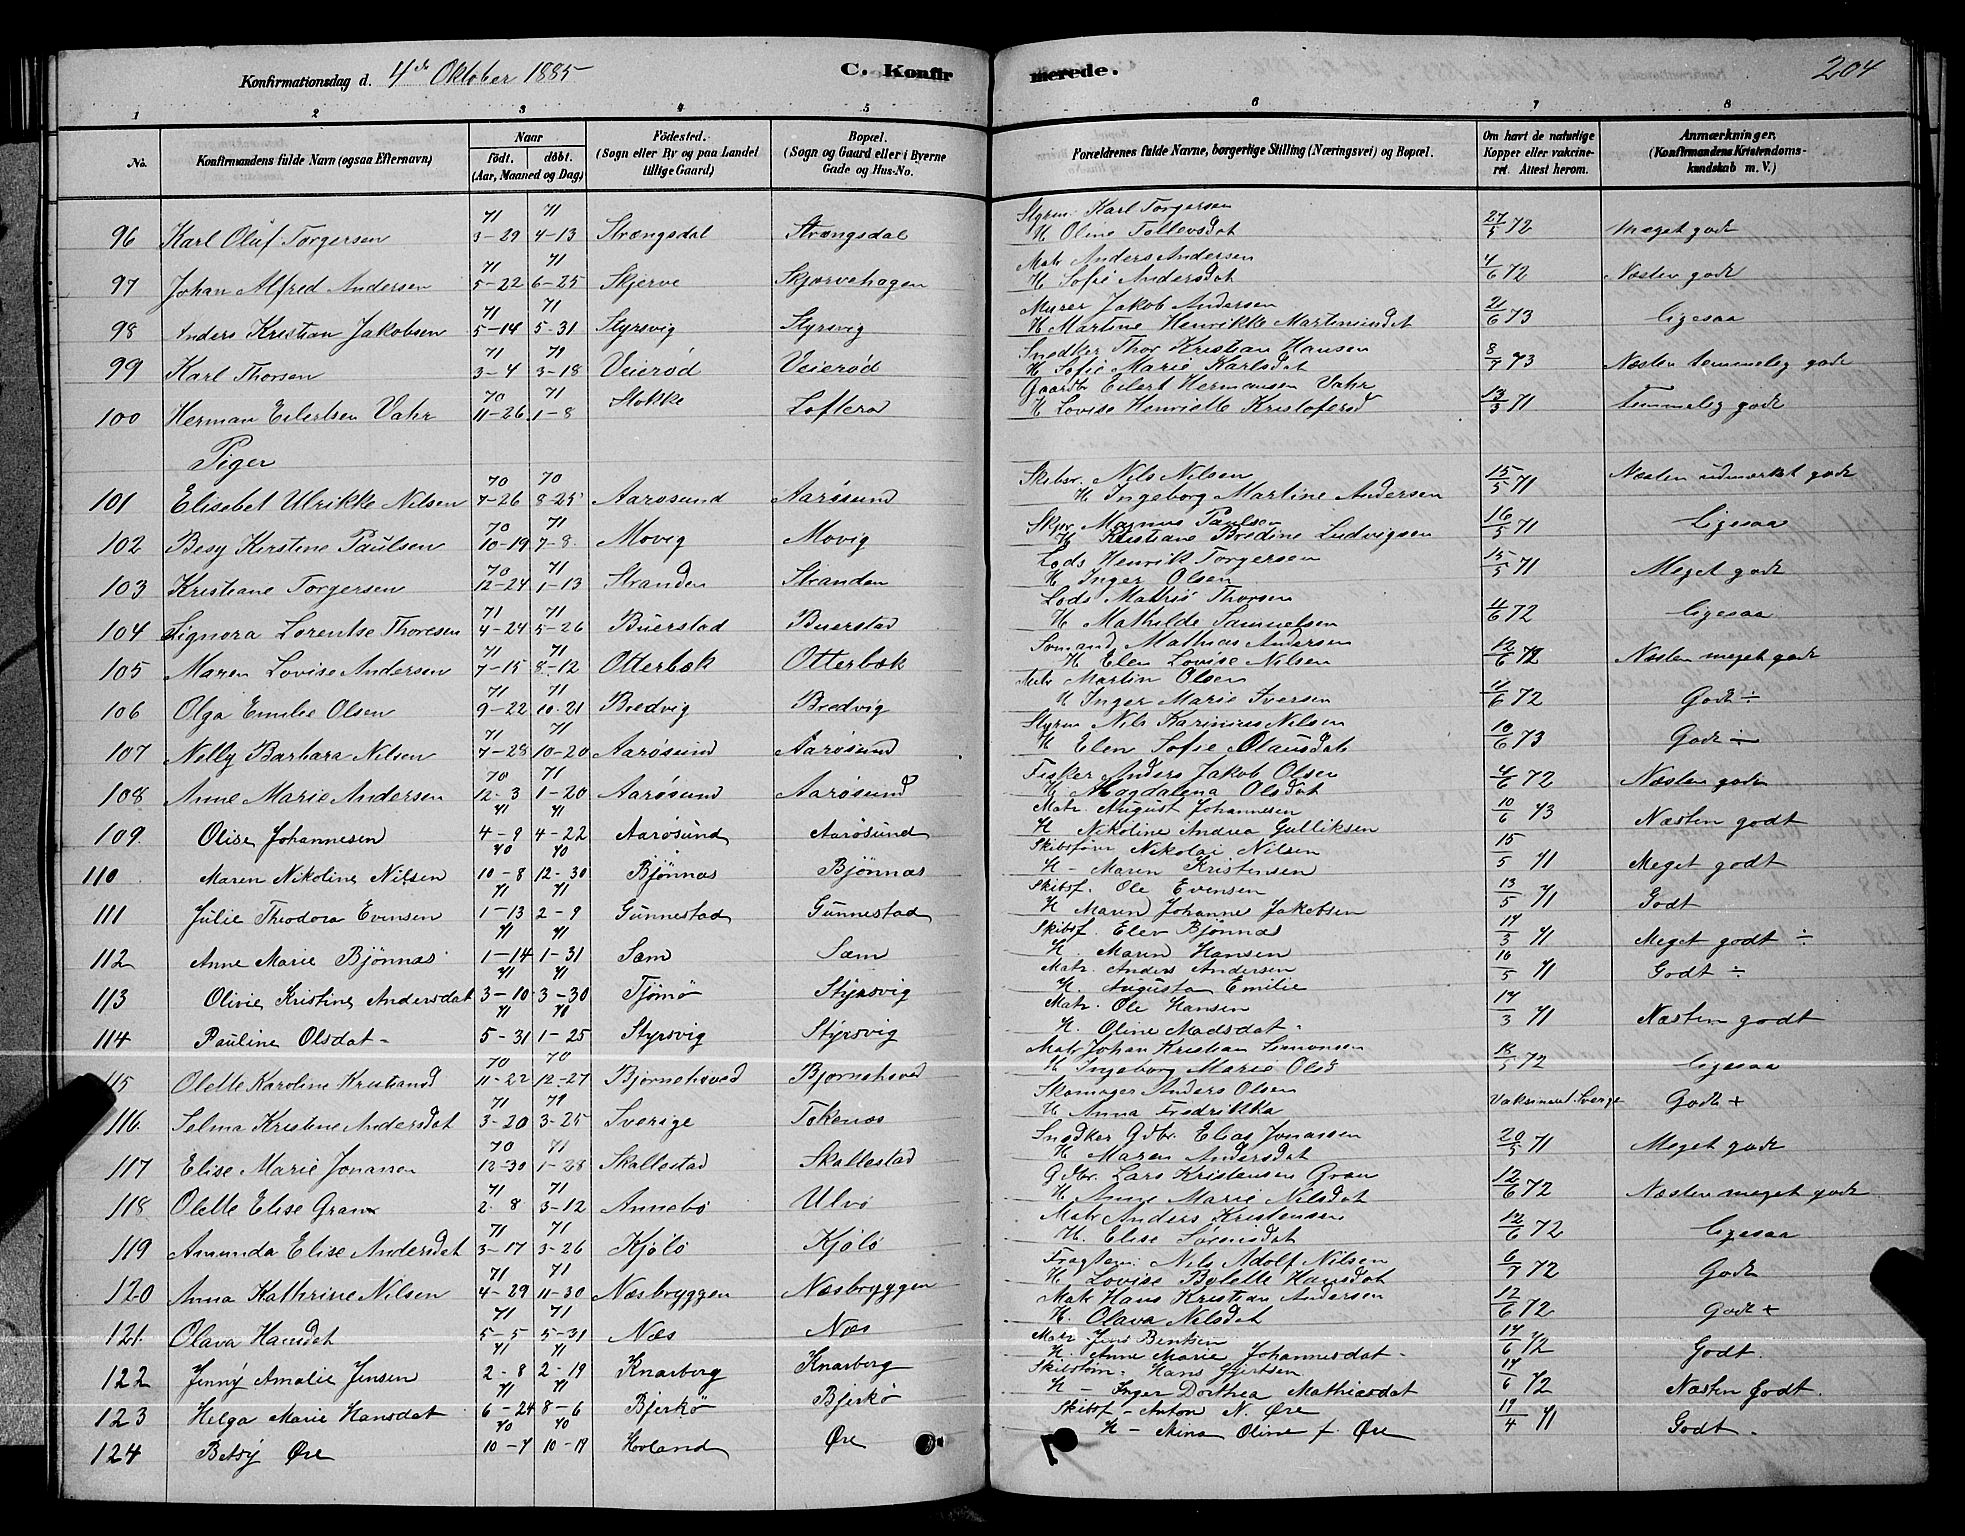 Konfirmationsdag d. 4de Oktober 1885
C. Konfirmerede.
204
1 2 3 4 5 6 7 8
No.
Konfirmandens fulde Navn (ogsaa Efternavn)
Naar
født. døbt.
(Aar, Maaned og Dag)
Fødested.
(Sogn eller By og paa Landet
tillige Gaard)
Bopæl.
(Sogn og Gaard eller i Byerne
Gade og Hus-No.
Forældrenes fulde Navne, borgerlige Stilling (Næringsvei) og Bopæl.
Om havt de naturlige
Kopper eller vakcine-
ret. Attest herom.
Anmærkninger.
(Konfirmandens Kristendoms-
kundskab m. V.)
71 71 Styrm. Karl Torgersen
96 Karl Oluf Torgersen 3-29 4-13 Strængsdal Strængsdal H. Oline Tollevsdat 27/5 72 Meget godt
71 71 Matr Anders Andersen
97 Johan Alfred Andersen 5-22 6-25 Skjerve Skjærvehagen H. Sofie Andersdat 4/6 72 Næsten godt
71 71 Murer Jakob Andersen
98 Anders Kristian Jakobsen 5-14 5-31 Styrsvig Styrsvig H. Martine Henrikke Martinusdat 21/6 73 Ligesaa
71 71 Snedker Thor Kristian Hansen
99 Karl Thorsen 3-4 3-18 Veierød Veierød H. Sofie Marie Karlsdat 8/7 73 Næsten temmelig godt
70 71 Gaardbr Eilert Hermansen Vahr
100 Herman Eilertsen Vahr 11-26 1-8 Stokke Lofterød H. Lovise Henriette Kristofersd 13/3 71 Temmelig godt
Piger
70 70 Skibsr. Nils Nilsen
101 Elisebet Ulrikke Nilsen 7-26 8-25 Aarøsund Aarøsund H. Ingeborg Martine Andersen 15/5 71 Næsten udmærket godt
70 71 Skpr. Magnus Paulsen
102 Besy Kirstine Paulsen 10-19 7-8 Movig Movig H. Kristiane Bredine Ludvigsen 16/5 71 Ligesaa
70 71 Lods Henrik Torgersen
103 Kristiane Torgersen 12-24 1-13 Stranden Stranden H. Inger Olsen 15/5 71 Meget godt
71 71 Lods Mathis Thorsen
104 Signora Lorentse Thoresen 4-24 5-26 Buerstad Buerstad H. Mathilde Samuelsen 4/6 72 Ligesaa
71 71 Sømand Mathias Andersen
105 Maren Lovise Andersen 7-15 8-12 Otterbæk Otterbæk H. Elen Lovise Nilsen 12/6 72 Næsten meget godt
71 71 Matr Martin Olsen
106 Olga Emilie Olsen 9-22 10-21 Bredvig Bredvig H. Inger Marie Iversen 4/6 72 Godt ÷
71 71 Styrm Nils Karinius Nilsen
107 Nelly Barbara Nilsen 7-28 10-20 Aarøsund Aarøsund H. Elen Sofie Olausdat 10/6 73 Godt ÷
70 71 Fisker Anders Jakob Olsen
108 Anne Marie Andersen 12-3 1-20 Aarøsund Aarøsund H. Magdalena Olsdat 4/6 72 Næsten godt
71 71 Matr. August Johannesen
109. Olise Johannesen 4-9 4-22 Aarøsund Aarøsund H. Nikoline Andrea Gulliksen 10/6 73 Næsten godt
70 70 Skibsfører Nikolai Nilsen
110 Maren Nikoline Nilsen 10-8 12-30 Bjønnæs Bjønnæs H - Maren Kristensen 15/5 71 Meget godt
71 71 Skibsf. Ole Evensen
111 Julie Theodora Evensen 1-13 2-9 Gunnestad Gunnestad H. Maren Johanne Jakobsen 13/5 71 Godt
71 71 Skibsf. Elev Bjønnæs
112 Anne Marie Bjønnæs 1-14 1-31 Sæm Sæm H. Maren Hansen 17/3 71 Meget godt ÷
71 71 Matr. Anders Andersen
113 Olivie Kristine Andersdat 3-10 3-30 Tjømø Styrsvig H. Augusta Emilie 16/5 71 Godt ÷
71 71 Matr. Ole Hansen
114 Pauline Olsdat - 5-31 1-25 Styrsvig Styrsvig H. Oline Madsdat - 17/3 71 Næsten godt
70 70 Matr Johan Kristian Simonsen
115 Olette Karoline Kristiansd 11-22 12-27 Bjørnehoved Bjørnehoved H. Ingeborg Marie Olsd 72 Ligesaa
71 71 Skomager Anders Olsen
116. Selma Kristine Andersdat 3-20 3-25 Sverige Tokenæs H. Anna Fredrikka Vaksineret i Sverige Godt +
70 71 Snedker Gdbr. Elias Jonassen
117 Elise Marie Jonassen 12-30 1-28 Skallestad Skallestad H. Maren Andersdat 20/5 71 Meget godt
71 71 Gdbr. Lars Kristensen Gran
118 Olette Elise Gran 2-8 3-12 Annebø Ulvø H. Anne Marie Nilsdat 12/6 72 Næsten meget godt
71 71 Matr Anders Kristensen
119 Amunda Elise Andersdat 3-17 3-26 Kjølø Kjølø H. Elise Sørensdat 12/6 72 Ligesaa
71 71 Nils Adolf Nilsen
120 Anna Kathrine Nilsen 4-29 11-30 Næsbryggen Næsbryggen H. Lovise Bolette Hansdat 6/7 72 Godt
71 71 Matr Hans Kristian Andersen
121. Olava Hansdat 5-5 5-31 Næs Næs H. Olava Nilsdat 12/6 72 Godt +
71 71 Matr. Jens Bentsen
122 Jenny Amalie Jensen 2-8 2-19 Knarberg Knarberg H. Anne Marie Johannesdat - 17/6 72 Godt.
71 71 Skibstøm. Hans Gjertsen
123 Helga Marie Hansdat 6-24 8-6 Bjerkø Bjerkø H - Inger Dorthea Mathiasdat 17/6 72 Næsten Godt.
70 70 Skibsf - Anton N. Øre
124 Betsy Øre 10-7 10-19 Horland Øre H - Mina Oline f. Øre 19/4 71 Godt -